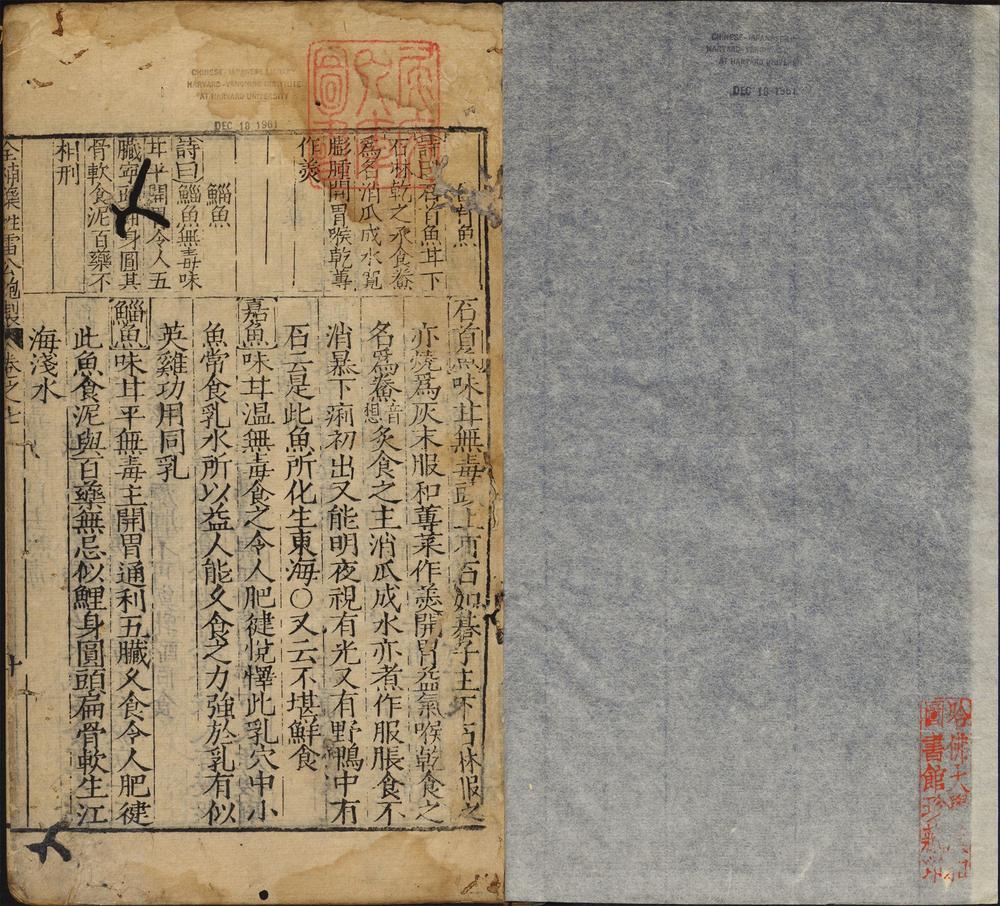 石首魚
詩曰石首魚甘下
石淋乾之炙食鯗
為名消瓜成水寬
膨腫開胃喉乾蓴
作羮
鯔魚
詩曰鯔魚無毒味
甘平開胃令人五
臟寧頭身圓其
骨軟食泥百藥不
相刑
石首魚味甘無毒頭上有石如碁子主下石淋服之
亦燒爲灰末服和蓴菜作羮開胃益氣喉乾食之
名爲鯗音想炙食之主消瓜成水亦煮作服脹食不
消暴下痢初出又能明夜視有光又有野鴨中有
石云是此魚所化生東海〇又云不堪鮮食
嘉魚味甘温無毒食之令人肥健悅懌此乳穴中小
魚常食乳水所以益人能久食之力強於乳有似
英雞功用同乳
鯔魚味甘平無毒主開胃通利五臟久食令人肥健
此魚食泥與百藥無忌似鯉身圓頭扁骨軟生江
海淺水
藥性雷公炮製
卷之七
CHINESE-JAPANESE LIBRARY
HARVARD-YENCHING INSTITUTE
AT HARVARD UNIVERSITY
DEC 18 1961
CHINESE-JAPANESE LIBRARY
HARVARD-YENCHING INSTITUTE
AT HARVARD UNIVERSITY
DEC 18 1961
哈佛大學
圖書館珍